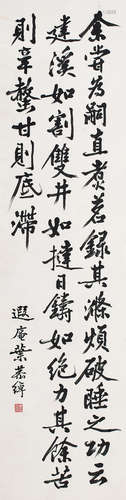 余嘗為嗣直煮茗錄其滌煩破睡之功云
建溪如割雙井如撻日鑄如絕力其餘苦
則辛螫甘則底滯
遐庵葉恭綽